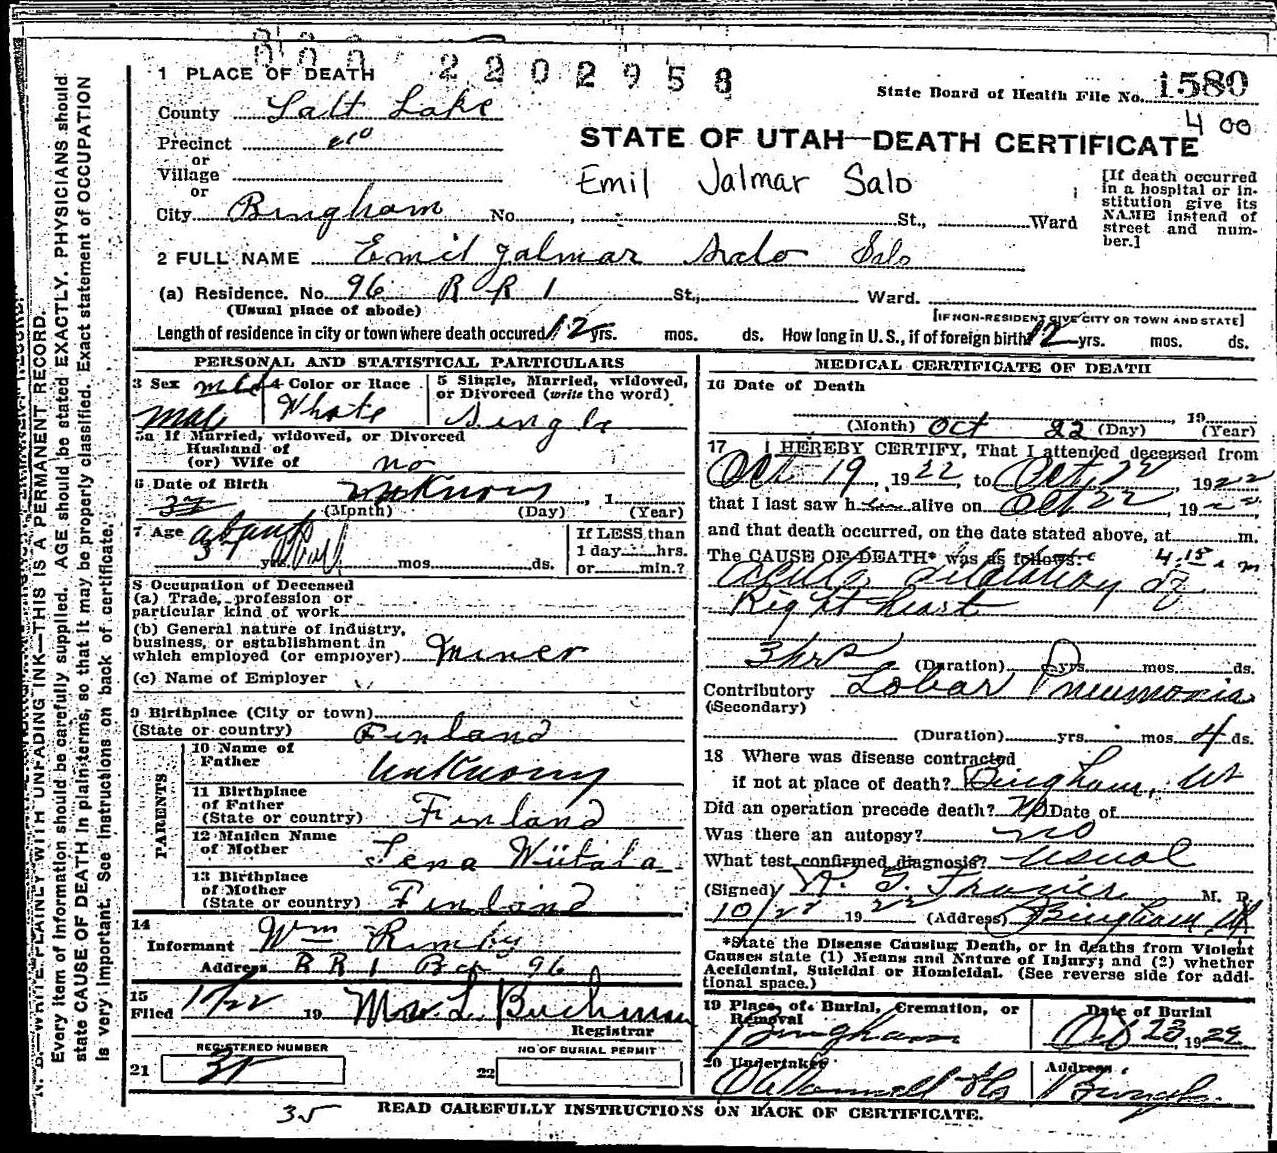 2202958
1 PLACE OF DEATH
State Board of Health File No. 1580
400
County Salt Lake
STATE OF UTAH—DEATH CERTIFICATE
Precinct
or
Village
or
Emil Jalmar Salo
[If death occurred in a hospital or in-
stitution give its
NAME instead of
street and num-
ber.]
City Bingham No. St., Ward
2 FULL NAME Emil Jalmar Salo Salo
(a) Residence. No. 96 R R 1 St., Ward.
(Usual place of abode) [IF NON-RESIDENT GIVE CITY OR TOWN AND STATE]
Length of residence in city or town where death occured 12 yrs. mos. ds. How long in U.S., if of foreign birth 12 yrs. mos. ds.
PERSONAL AND STATISTICAL PARTICULARS
3 Sex male
4 Color or Race White
5 Single, Married, widowed,
or Divorced (write the word)
Single
5a If Married, widowed, or Divorced
Husband of
(or) Wife of no
6 Date of Birth unknown, 1
(Month) (Day) (Year)
7 Age about
37 yrs. mos. ds.
If LESS than
1 day hrs.
or min.?
8 Occupation of Deceased
(a) Trade, profession or
particular kind of work
(b) General nature of industry,
business, or establishment in
which employed (or employer) Miner
(c) Name of Employer
9 Birthplace (City or town)
(State or country) Finland
PARENTS
10 Name of
Father unknown
11 Birthplace
of Father
(State or country) Finland
12 Maiden Name
of Mother Lena Wiitala
13 Birthplace
of Mother
(State or country) Finland
14
Informant Wm Rimby
Address R R 1 Box 96
15
Filed 10/22 19 Mrs. L. Buchman
Registrar
REGISTERED NUMBER
21 35
NO OF BURIAL PERMIT
22
35
MEDICAL CERTIFICATE OF DEATH
16 Date of Death
19
(Month) Oct 22 (Day) (Year)
17 I HEREBY CERTIFY, That I attended deceased from
Oct 19, 1922, to Oct, 22 1922
that I last saw h alive on Oct 22, 1922
and that death occurred, on the date stated above, at m.
The CAUSE OF DEATH* was as follows: 4.15 a m
Acute dilatation of
Right heart
3 hrs (Duration) yrs. mos. ds.
Contributory Lobar Pneumonia
(Secondary)
(Duration) yrs. mos. 4 ds.
18 Where was disease contracted
if not at place of death? Bingham, Ut
Did an operation precede death? No Date of
Was there an autopsy? no
What test confirmed diagnosis? usual
(Signed) Frazier M. D.
10/22 1922 (Address) Bingham Ut
*State the Disease Causing Death, or in deaths from Violent
Causes state (1) Means and Nature of Injury; and (2) whether
Accidental, Suicidal or Homicidal. (See reverse side for addi-
tional space.)
19 Place of Burial, Cremation, or
Removal
Bingham
Date of Burial
Oct 23, 1922
20 Undertaker
O'Donnell & Co
Address
Bingh.
READ CAREFULLY INSTRUCTIONS ON BACK OF CERTIFICATE.
N. B. WRITE PLAINLY WITH UNFADING INK—THIS IS A PERMANENT RECORD.
Every item of Information should be carefully supplied. AGE should be stated EXACTLY. PHYSICIANS should
state CAUSE OF DEATH in plain terms, so that it may be properly classified. Exact statement of OCCUPATION
is very important. See instructions on back of certificate.